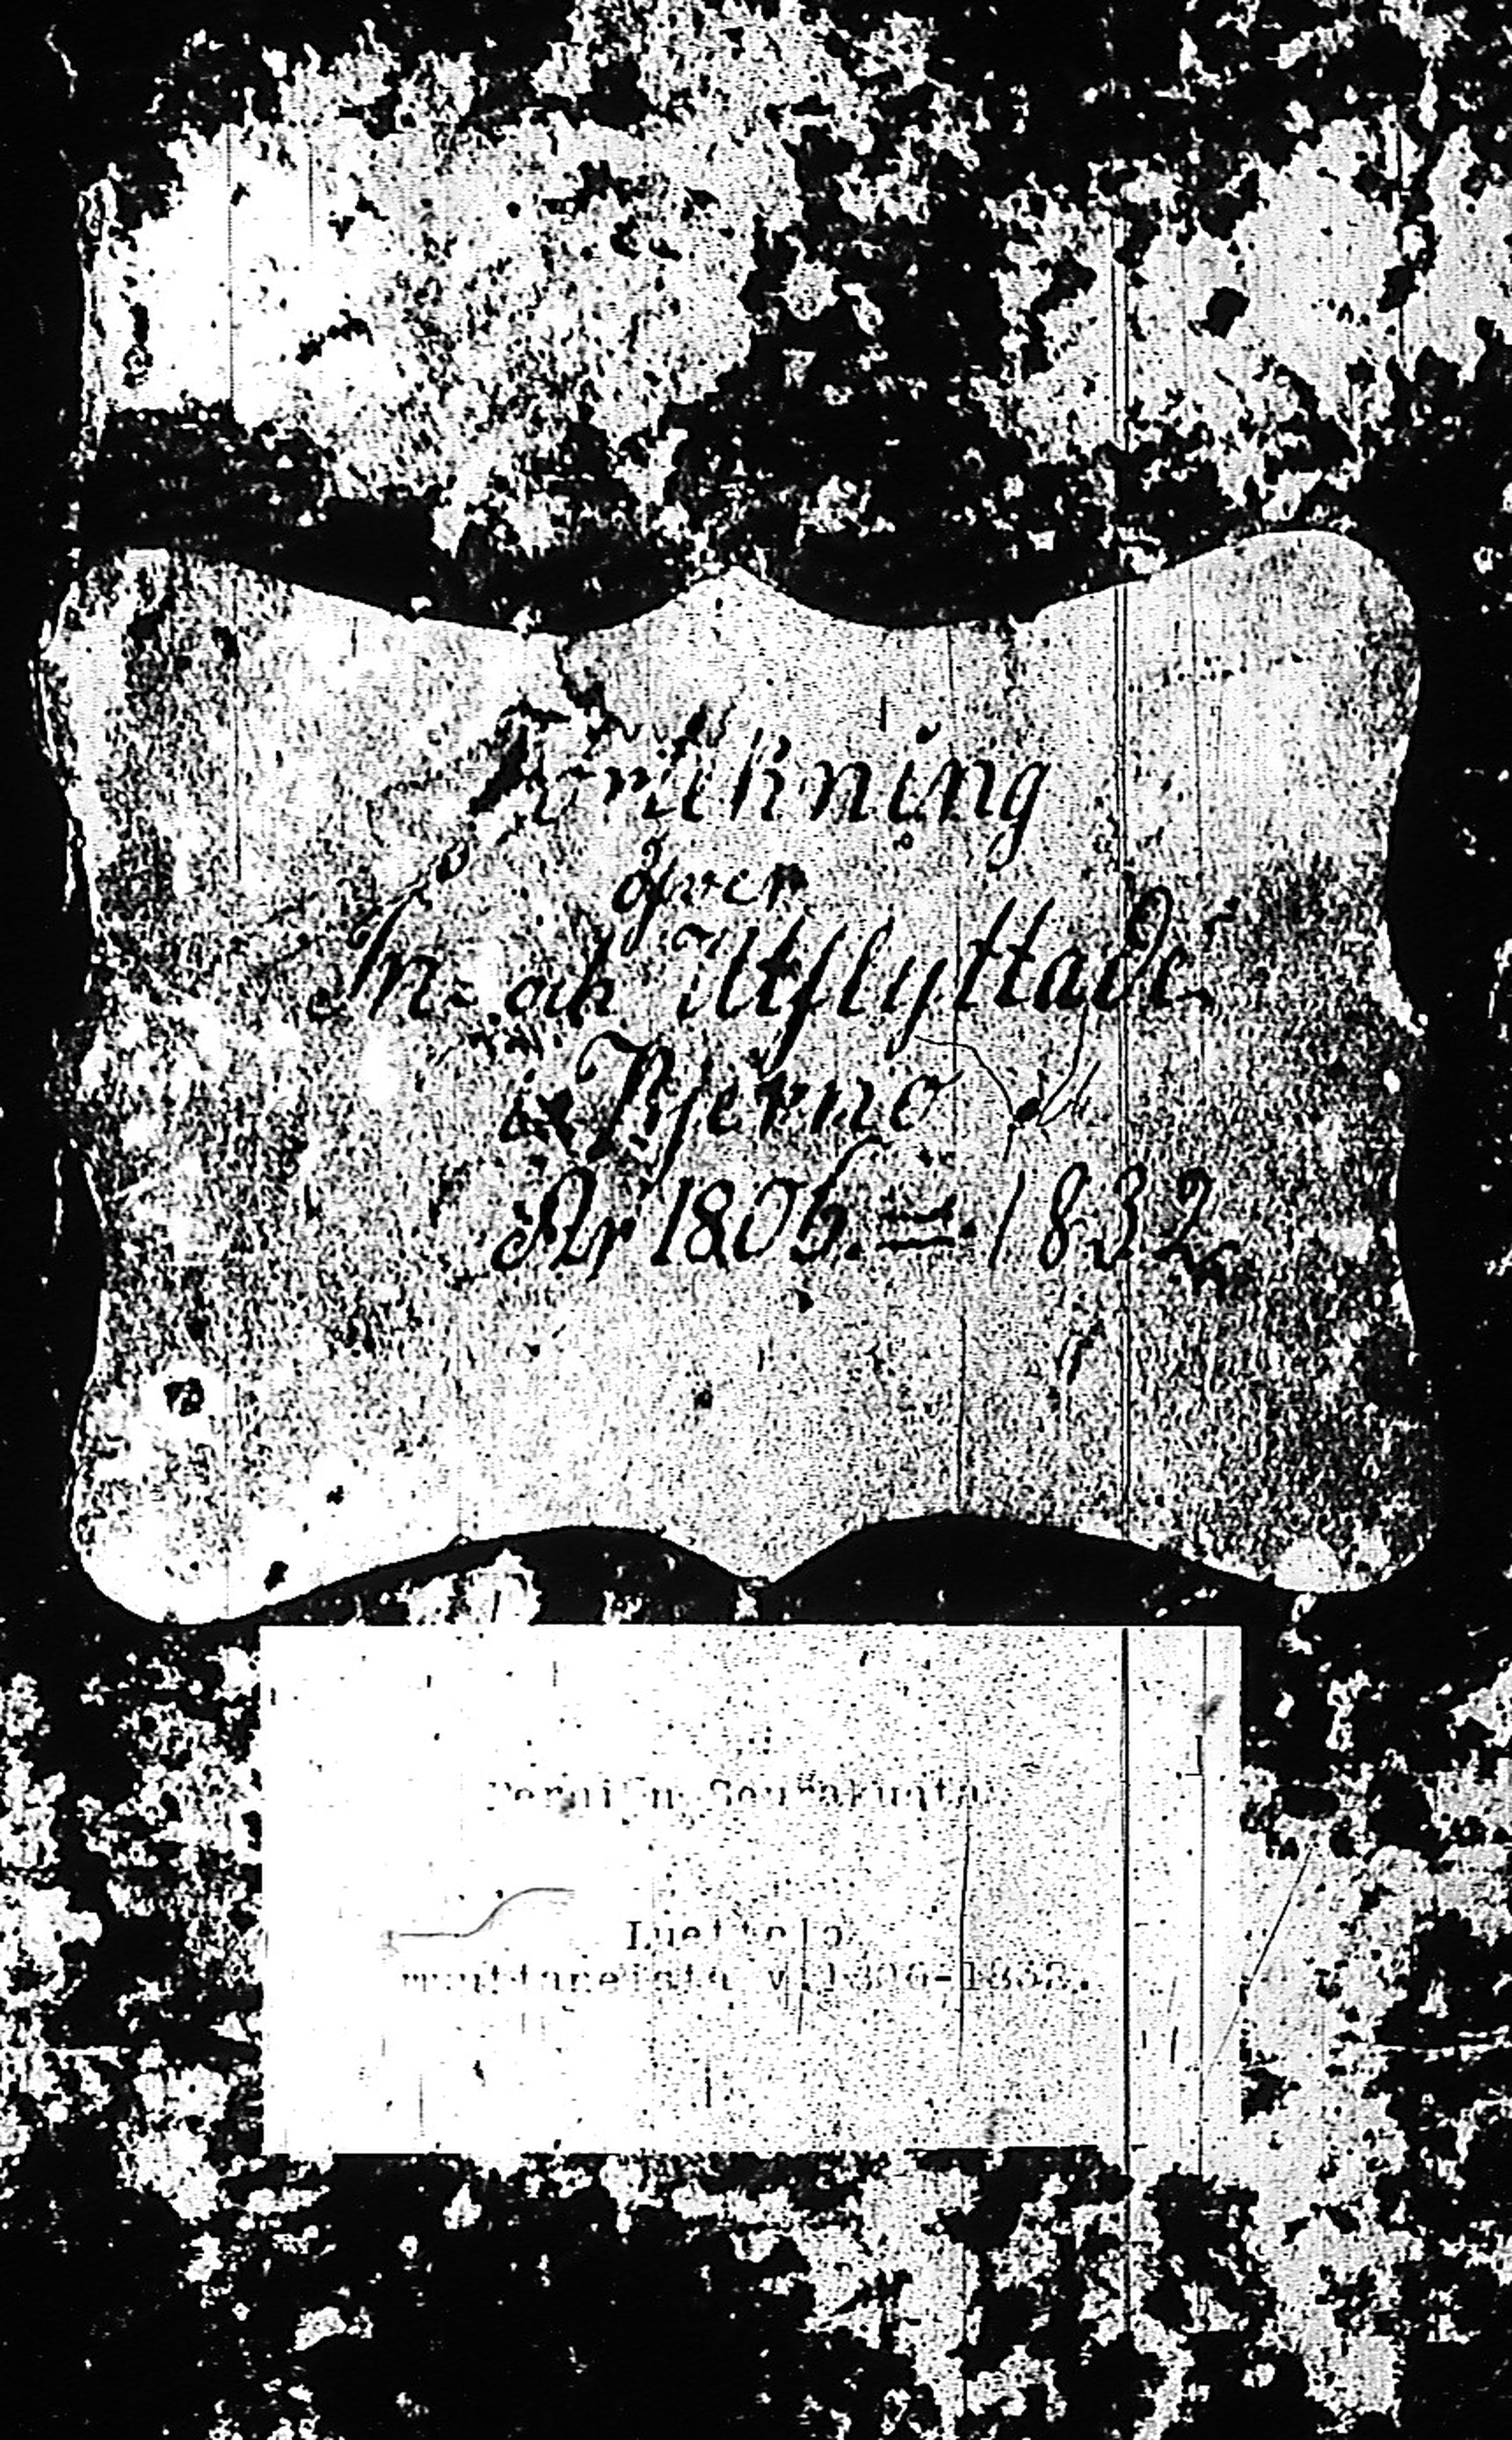 Förtekning
öfver
In- och Utflyttade
i Bjerno
År 1806. - 1832
Perniön Seurakunta
Luettelo
muuttaneista v.1806-1832.